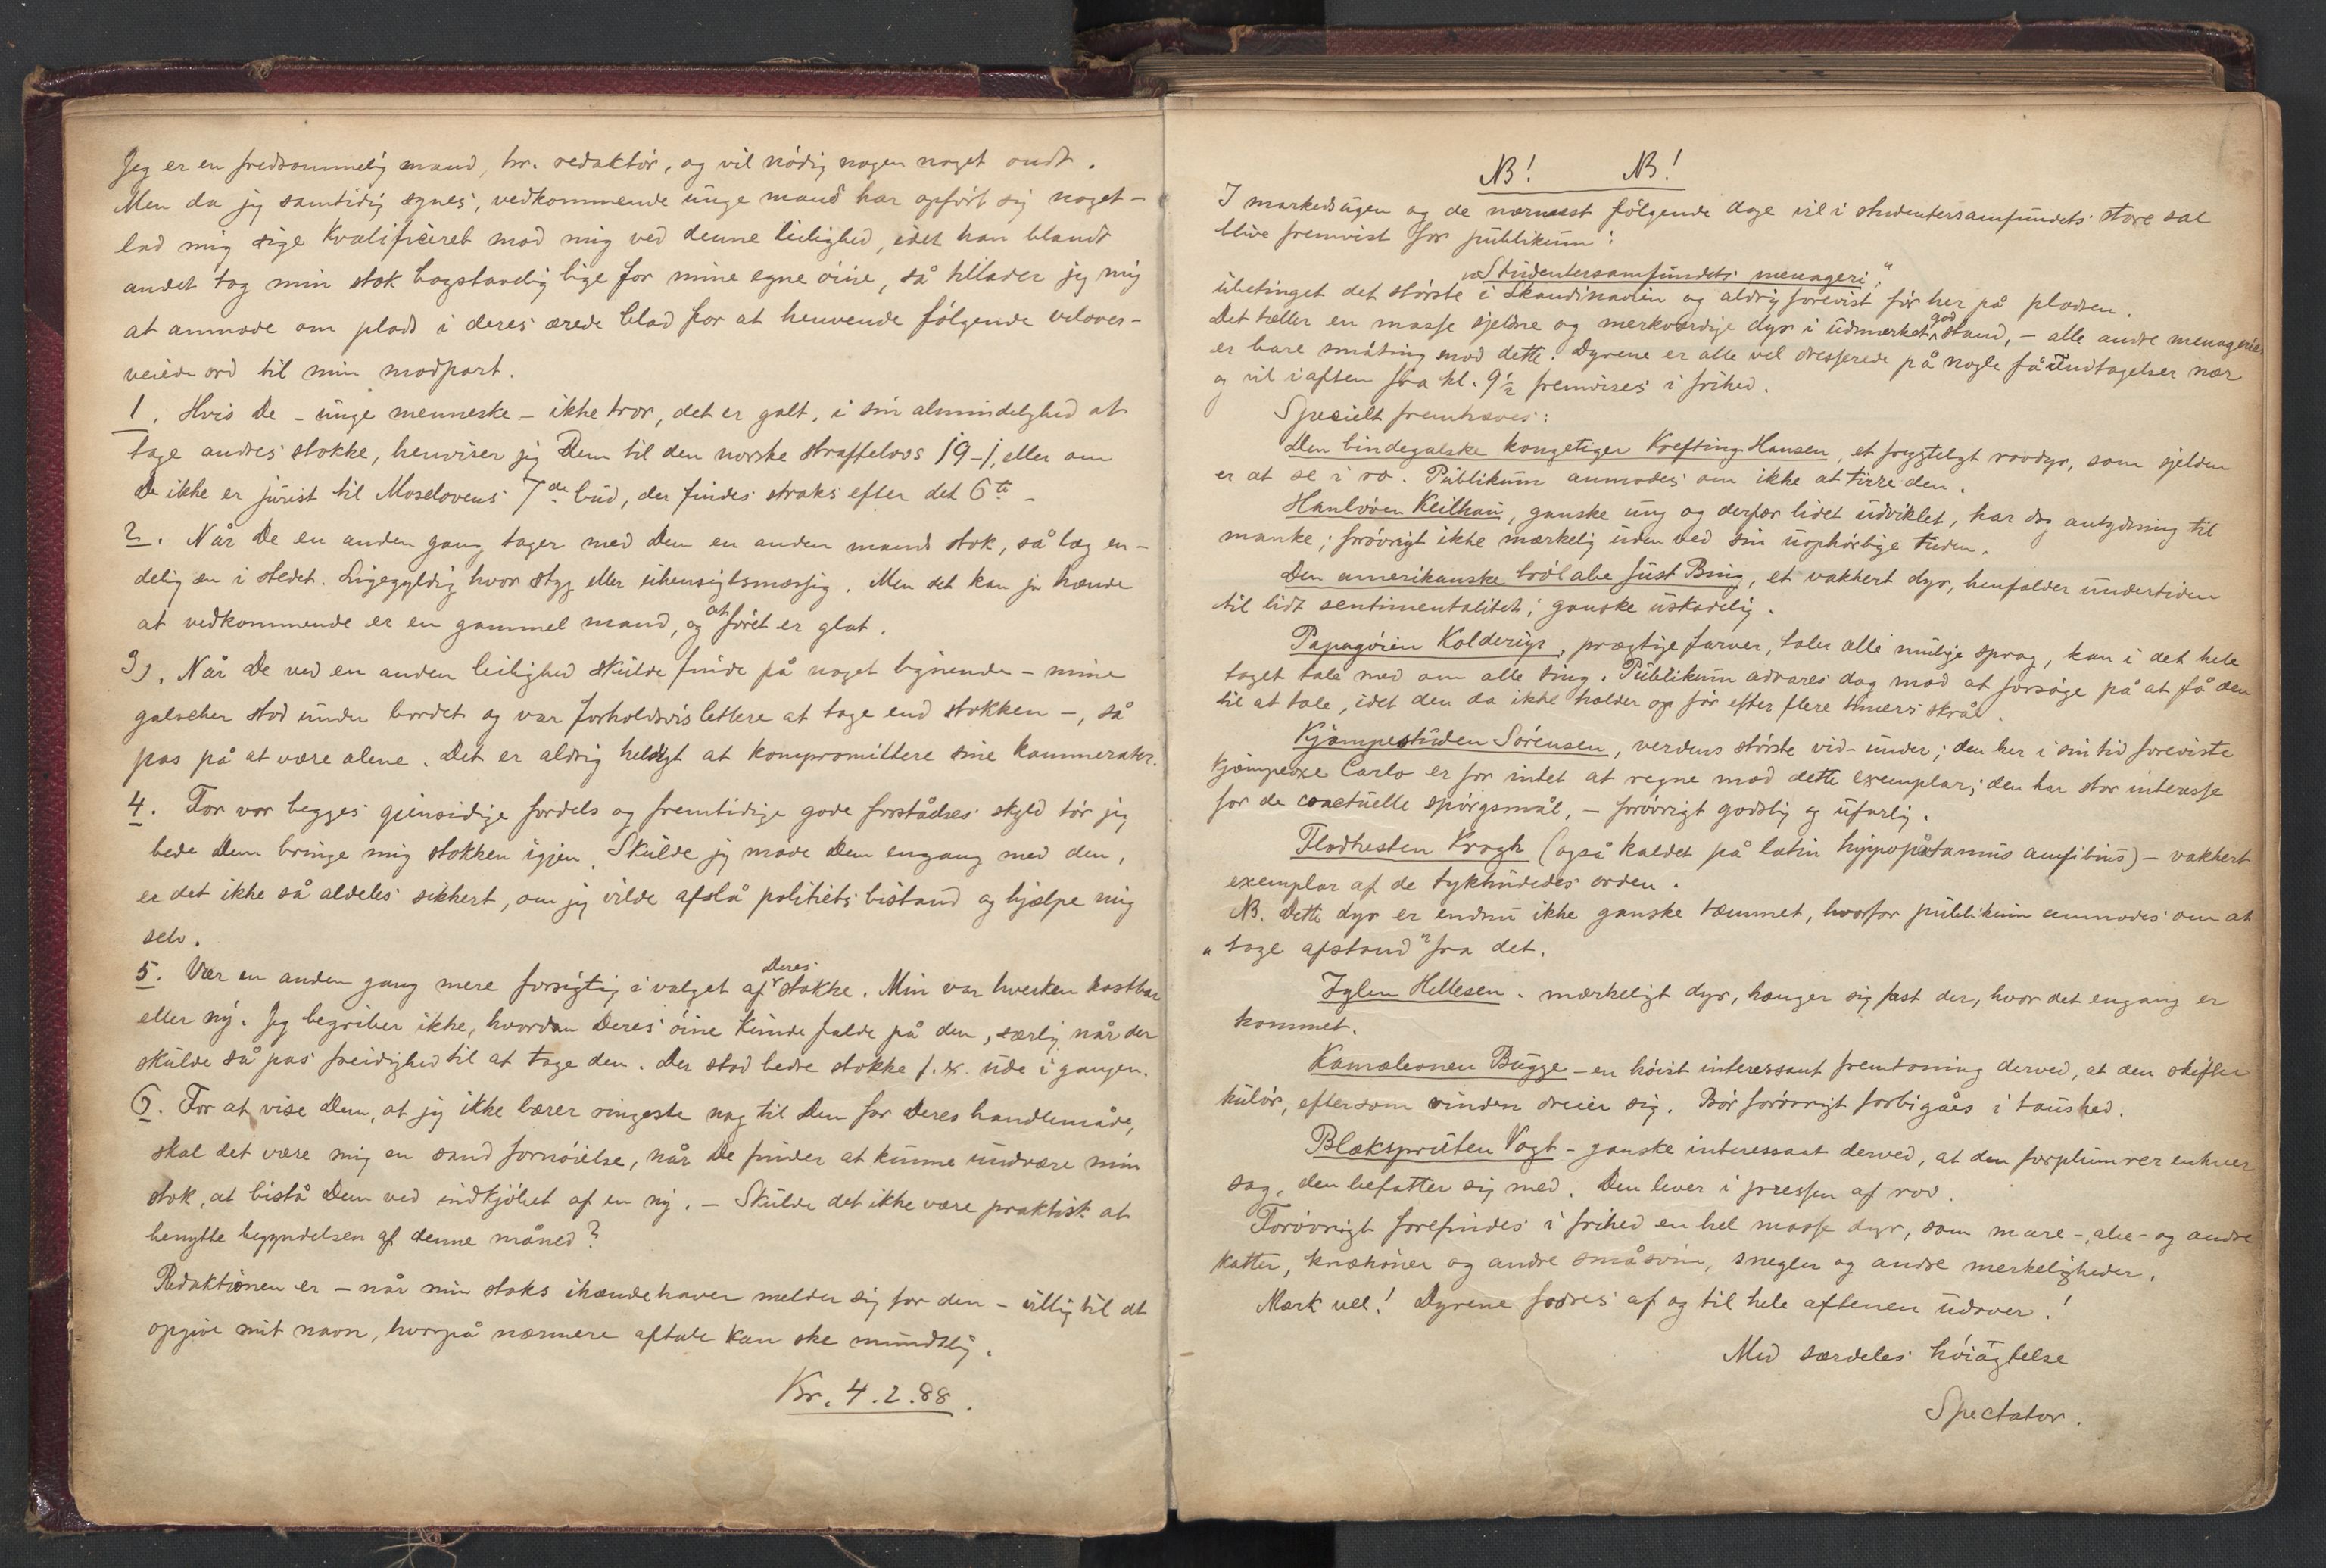 Jeg er en fredsommelig mand, hr. redaktör, og vil nödig nogen noget ondt.
Men da jeg samtidig synes, vedkommende unge mand har opfört sig noget-
lad mig sige kvalificeret mod mig ved denne leilighed, idet han blandt
andet tog min stok bogstavelig lige for mine egne öine, så tillader jeg mig
at anmode om plads i deres ærede blad for at henvende fölgende velover-
veiede ord til min modpart.
1. Hvis De - unge menneske - ikke tror, det er galt, i sin almindelighed at
tage andres stokke, henviser jeg Dem til den norske straffelovs 19-1, eller om
De ikke er jurist til Moselovens 7de bud, der findes straks efter det 6te -
2. Når De en anden gang tager med Dem en anden mands stok, så læg en-
delig en i stedet. Ligegyldig hvor styg eller uhensigtsmæssig. Men det kan jo hænde
at vedkommende er en gammel mand, og at föret er glat.
3). Når De ved en anden leilighed skulde finde på noget lignende - mine
galoscher stod under bordet og var forholdsvis lettere at tage end stokken -, så
pas på at være alene. Det er aldrig heldigt at kompromittere sine kammerater.
4. For vor begges gjensidige fordels og fremtidige gode forståelses skyld tör jeg
bede Dem bringe mig stokken igjen. Skulde jeg möde Dem engang med den,
er det ikke så aldeles sikkert, om jeg vilde afslå politiets bistand og hjælpe mig
selv.
5. Vær en anden gang mere forsigtig i valget af Deres stokke. Min var hverken kostbar
eller ny. Jeg begriber ikke, hvordan Deres öine kunde falde på den, særlig når der
skulde så pas freidighed til at tage den. Der stod bedre stokke f. ex. ude i gangen.
6. For at vise Dem, at jeg ikke bærer ringeste nag til Dem for Deres handlemåde,
skal det være mig en sand fornöielse, når De finder at kunne undvære min
stok, at bistå Dem ved indkjöbet af en ny. - Skulde det ikke være praktisk at
benytte begyndelsen af denne måned?
Redaktionen er - når min stoks ihændehaver melder sig for den - villig til at
opgive mit navn, hvorpå nærmere aftale kan ske mundtlig.
Kr. 4.2.88.
NB! NB!
I markedsugen og de nærmest fölgende dage vil i studentersamfundets store sal
blive fremvist for publikum:
"Studentersamfundets menageri",
ubetinget det störste i Skandinavien og aldrig forevist för her på pladsen.
Det tæller en masse sjeldne og merkværdige dyr i udmerket god stand, - alle andre menagerier
er bare småting mod dette. Dyrene er alle vel dresserede på nogle få undtagelser nær
og vil i aften fra kl. 9½ fremvises i frihed.
Specielt fremhæves:
Den bindegalske kongetiger Krefting-Hansen, et frygteligt rovdyr, som sjelden
er at se i ro. Publikum anmodes om ikke at tirre den.
Hanlöven Keilhau, ganske ung og derfor lidet udviklet, har dog antydning til
manke; forövrigt ikke mærkelig uden ved sin uophörlige tuden.
Den amerikanske brölabe Just Bing, et vakkert dyr, henfalder undertiden
til lidt sentimentalitet; ganske uskadelig.
Papagöien Kolderup, prægtige farver, taler alle mulige sprog, kan i det hele
taget tale med om alle ting. Publikum advares dog mod at forsöge på at få den
til at tale, idet den da ikke holder op för efter flere timers skrål.
Kjæmpestuden Sörensen, verdens störste vid-under; den her i sin tid foreviste
kjæmpeoxe Carlo er for intet at regne mod dette exemplar; den har stor interesse
for de coactuelle spörgsmål, - forövrigt godslig og ufarlig.
Flodhesten Krogh (også kaldet på latin hyppopotamus amfibius) - vakkert
exemplar af de tykhudedes orden.
NB. Dette dyr er endnu ikke ganske tæmmet, hvorfor publikum anmodes om at
"tage afstand" fra det.
Iglen Hellesen. mærkeligt dyr, hænger sig fast der, hvor det engang er
kommet.
Kamæleonen Bugge - en höist interessant fremtoning derved, at den skifter
kulör, eftersom vinden dreier sig. Bör forövrigt forbigåes i taushed.
Blæksprutten Vogt - ganske interessant derved, at den forplumrer enhver
sag, den befatter sig med. Den lever i pressen af rov.
Forövrigt forefindes i frihed en hel masse dyr, som mare-, abe- og andre
katter, knæhöner og andre småsvin, snegler og andre merkeligheder.
Mærk vel! Dyrene fodres af og til hele aftenen udover!
Med særdeles höiagtelse
Spectator.